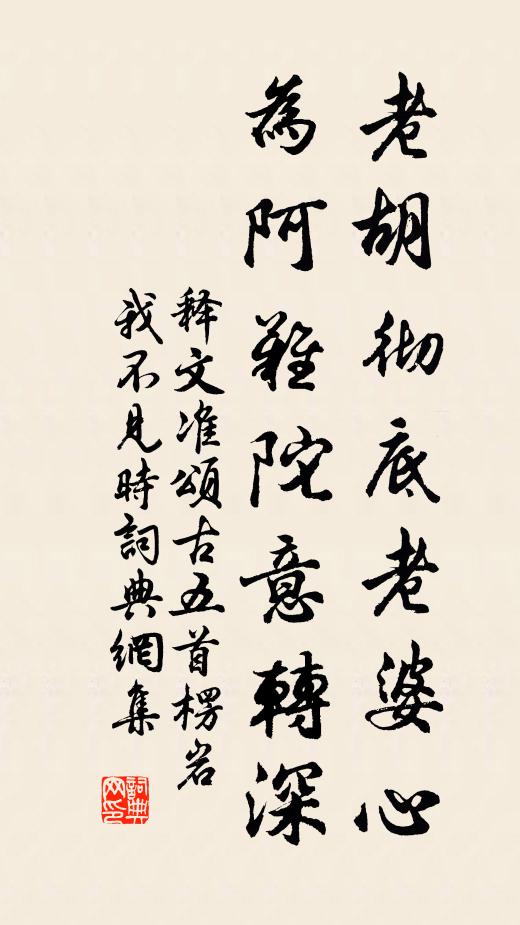 老胡彻底老婆心
為阿難陀意轉深
释文准頌古五首楞岩
我不見時詞典網集
詞典网印